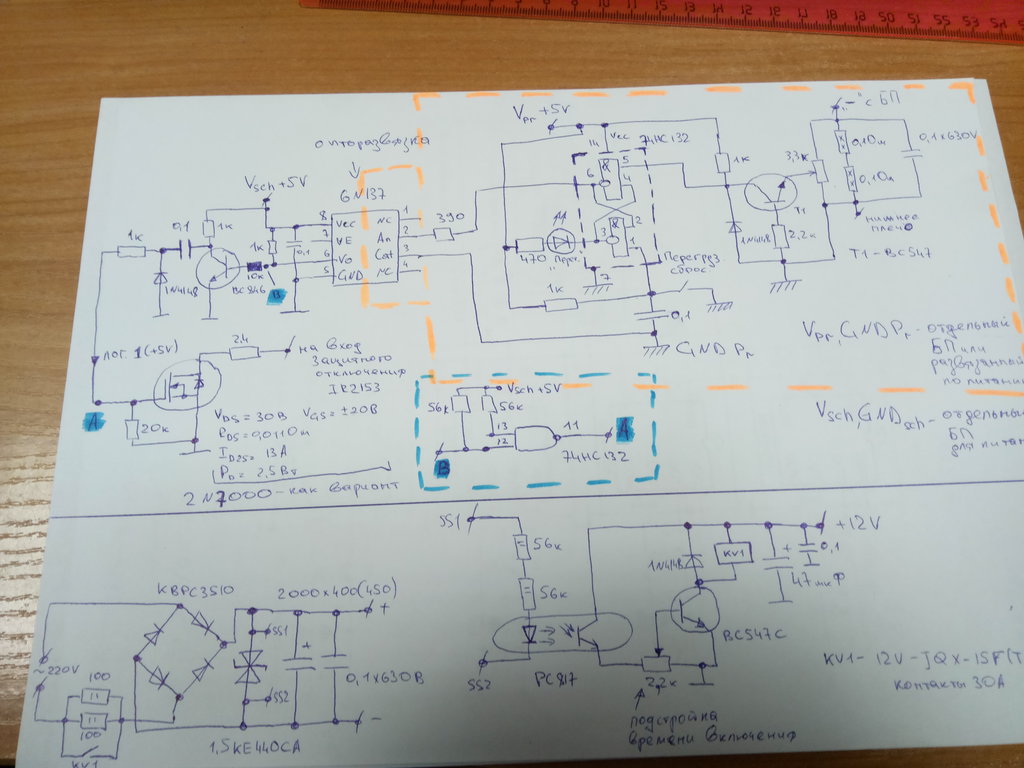 Vpr +5v
"-" с БП
оптроразвязка
14
Vcc
74HC132
5
6
&
4
1к
3,3к
0,1Ом
0,1Ом
0,1x630V
Vsch +5V
6N137
0,1
1к
1к
1к
0,1
8
7
6
5
Vcc
VE
Vo
GND
NC
An
Cat
NC
1
2
3
4
390
2
&
3
1
7
T1
нижнее
плечо
1N4148
2,2к
470
"Перег."
Перегруз
сброс
T1 - BC547
1N4148
10к
BC846
B
1к
0,1
GND Pr
Vpr, GND Pr - отдельный
БП или
развязанный
по питанию
лог. 1 (+5v)
24
на вход
защитного
отключения
IR2153
A
20к
VDS = 30В VGS = ±20В
RDS = 0,011Ом
ID25 = 13А
PD = 2,5Вт
2N7000 - как вариант
Vsch +5V
56к
56к
13
12
11
A
B
74HC132
Vsch, GNDsch - отдельный
БП
для питан
SS1
56к
56к
+12V
1N4148
KV1
+
47мкФ
0,1
BC547C
PC817
SS2
2,2к
подстройка
времени включения
KV1 - 12V - JQX-15F(T
контакты 30А
KBPC3510
2000x400(450)
+
SS1
+
SS2
0,1x630В
-
1,5KE440CA
~220V
100
100
KV1